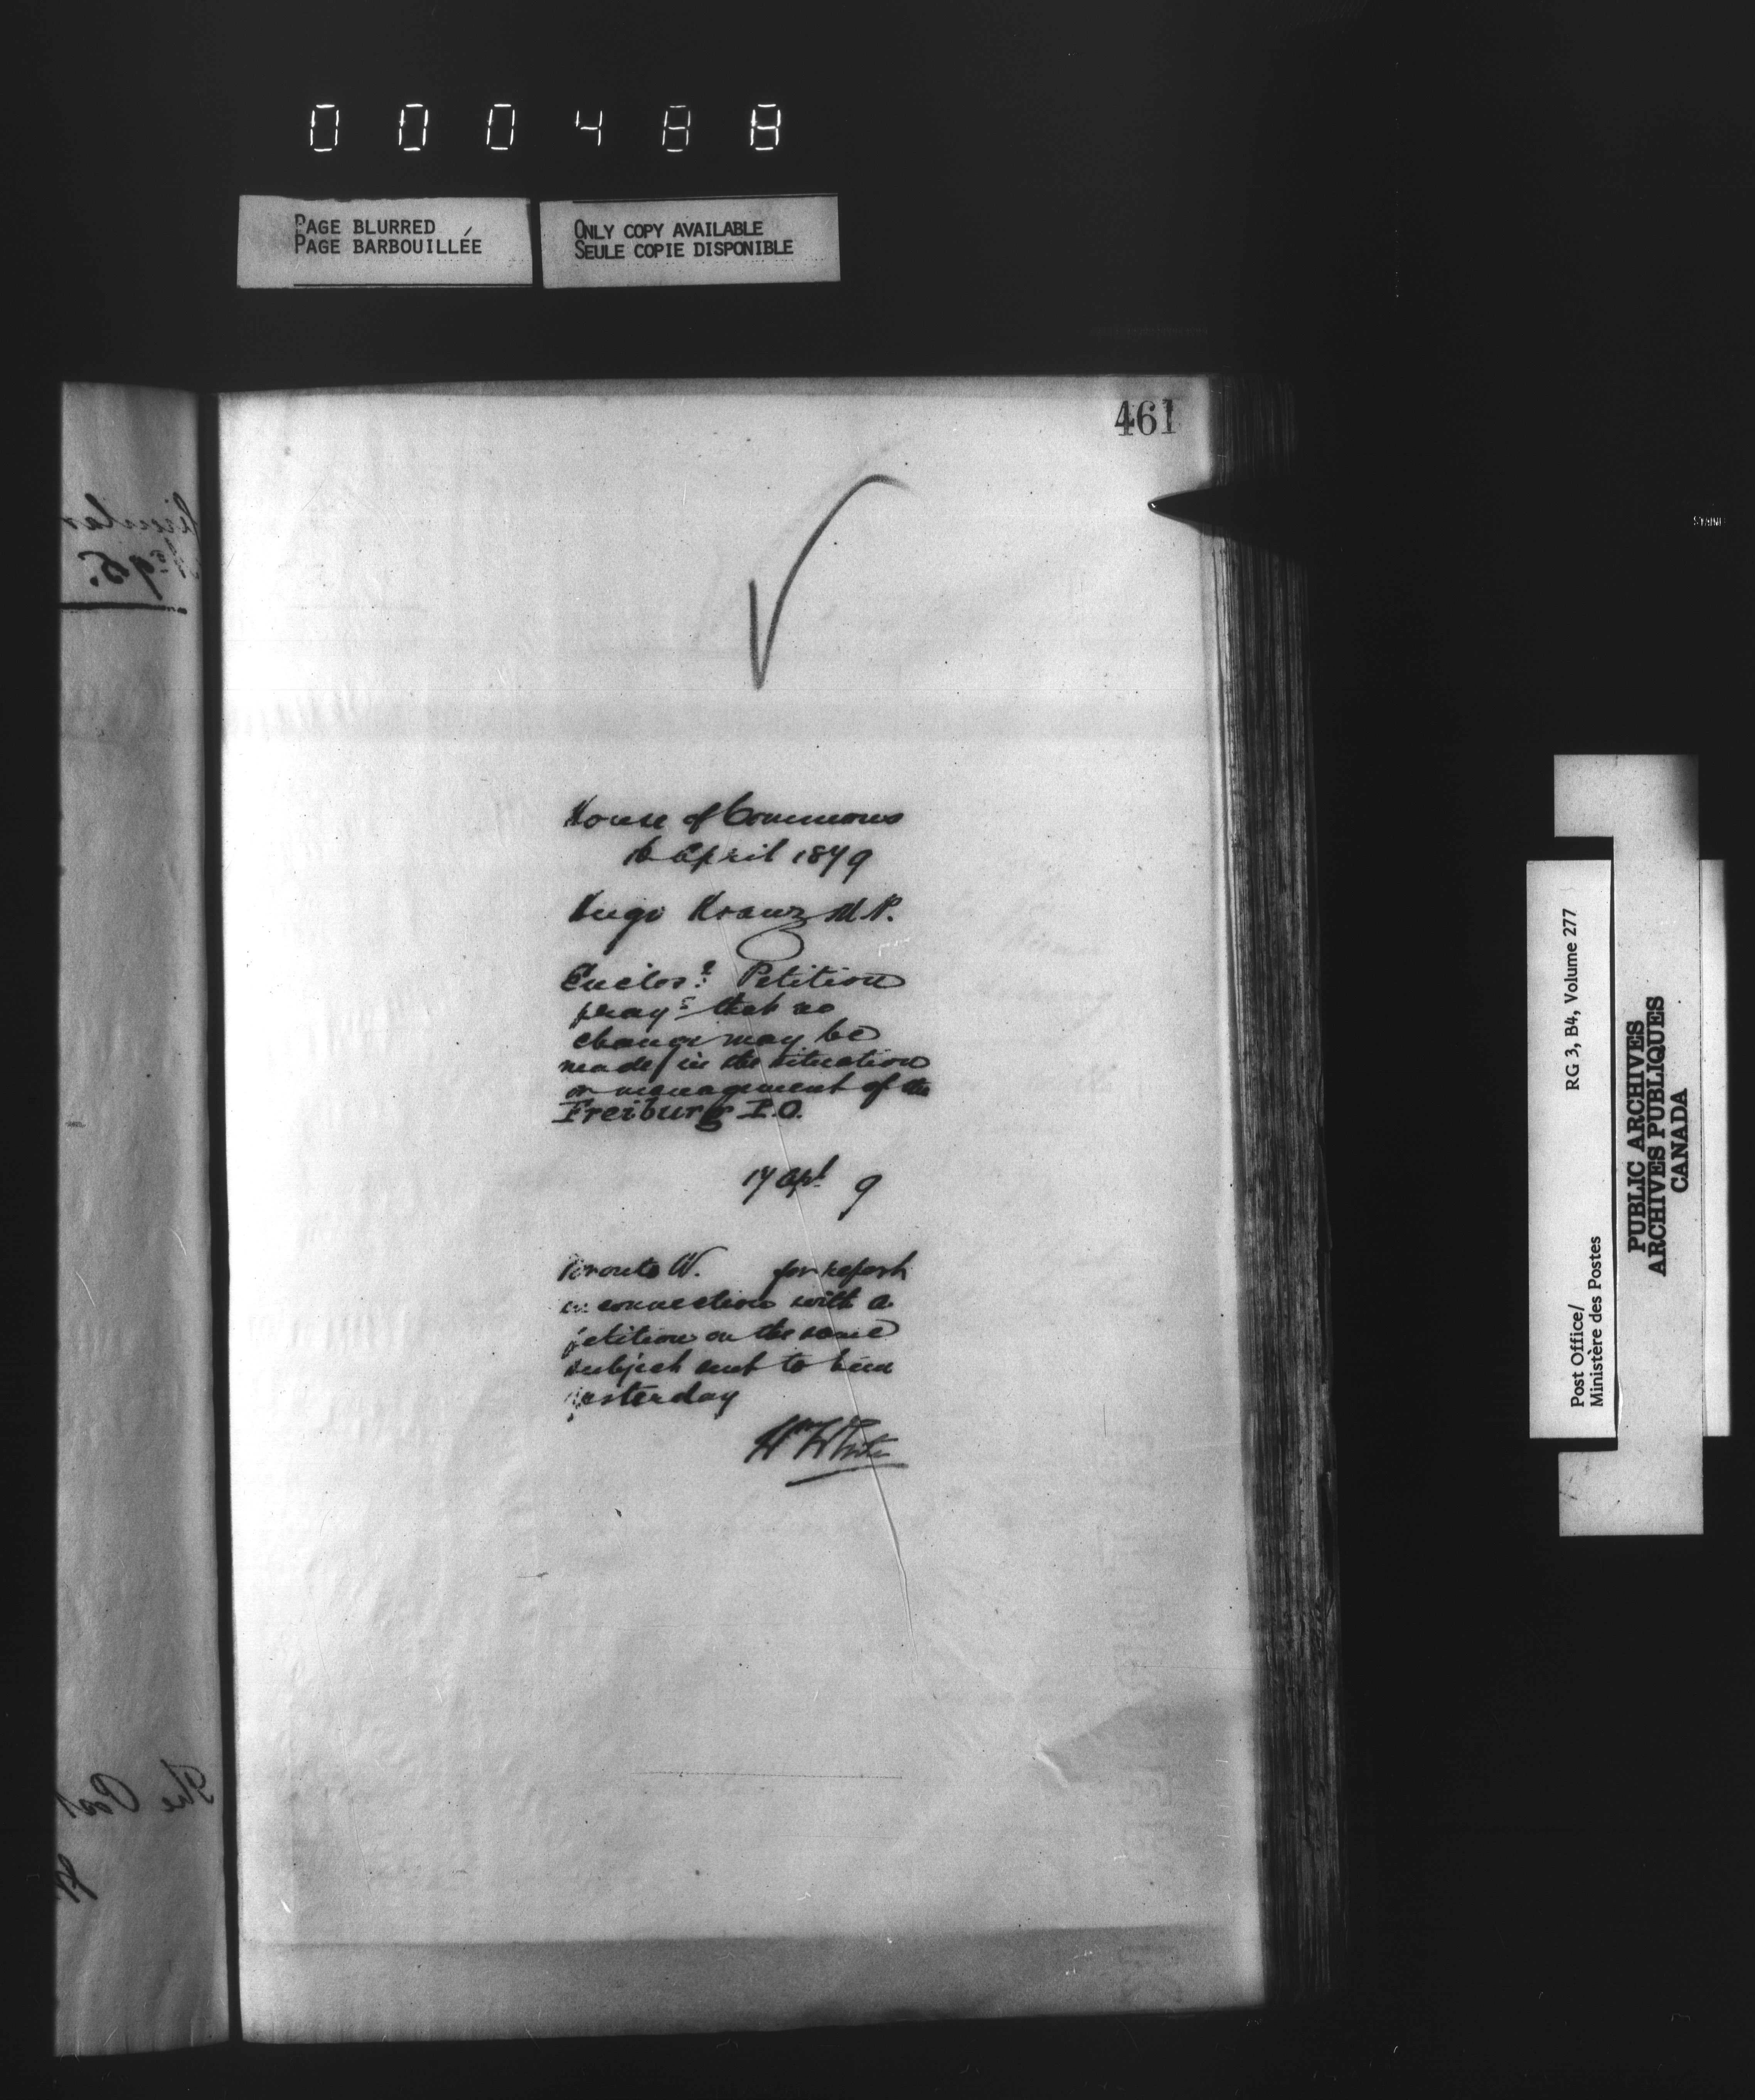 000488
PAGE BLURRED
PAGE BARBOUILLÉE
ONLY COPY AVAILABLE
SEULE COPIE DISPONIBLE
461
House of Commons
16 April 1879
Hugo Kranz M.P.
Enclosg Petition
prayg that no
change may be
made in the situation
or management of the
Freiburg P.O.
17 Apl 9
Toronto W. for report
in connection with a
petition on the same
subject sent to him
yesterday
Wm White
Circular
No 95.
The Post
RG 3, B4, Volume 277
Post Office/
Ministère des Postes
PUBLIC ARCHIVES
ARCHIVES PUBLIQUES
CANADA